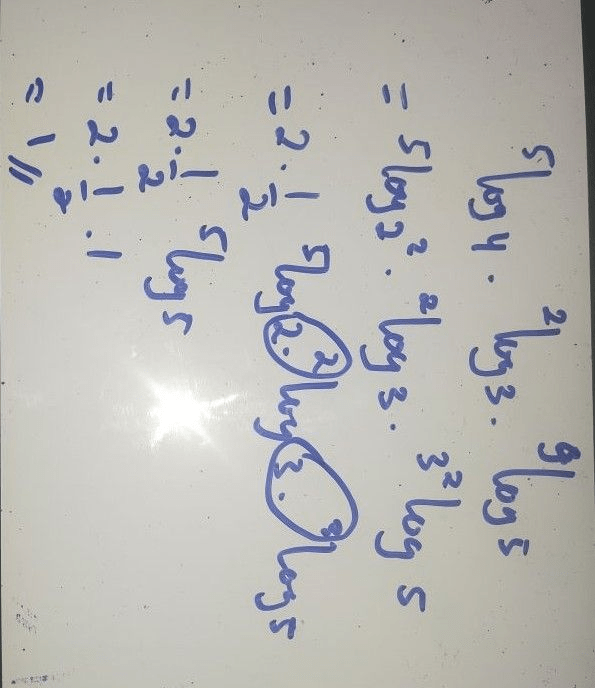 ⁵log 4 . ²log 3 . ⁹log 5
= ⁵log 2² . ²log 3 . ^{3²}log 5
= 2 . 1/2 ⁵log 2 . ²log 3 . ³log 5
= 2 . 1/2 ⁵log 5
= 2 . 1/2 . 1
= 1 //